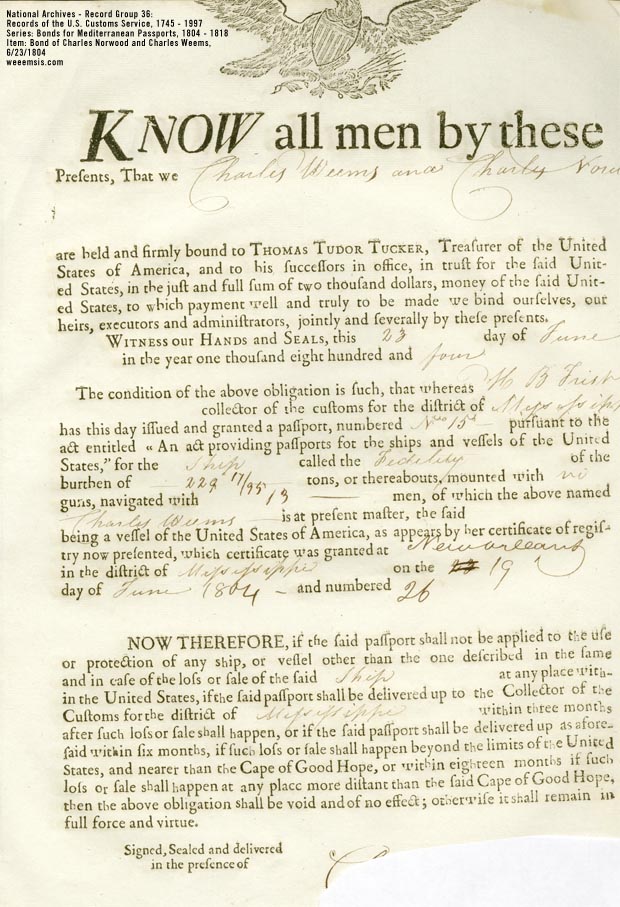 National Archives - Record Group 36:
Records of the U.S. Customs Service, 1745 - 1997
Series: Bonds for Mediterranean Passports, 1804 - 1818
Item: Bond of Charles Norwood and Charles Weems,
6/23/1804
weeemsis.com
KNOW all men by these
Preſents, That we Charles Weems and Charles Norw
are held and firmly bound to THOMAS TUDOR TUCKER, Treaſurer of the United
States of America, and to his ſucceſſors in office, in truſt for the ſaid Unit-
ed States, in the juſt and full ſum of two thouſand dollars, money of the ſaid Unit-
ed States, to which payment well and truly to be made we bind ourſelves, our
heirs, executors and adminiſtrators, jointly and ſeverally by theſe preſents.
WITNESS OUR HANDS and SEALS, this 23 day of June
in the year one thouſand eight hundred and four
The condition of the above obligation is ſuch, that whereas H B Trist
collector of the cuſtoms for the diſtrict of Mississipp
has this day iſſued and granted a paſſport, numbered 15 pursuant to the
act entitled “ An act providing paſſports foſ the ſhips and veſſels of the United
States,” for the Ship called the Fidelity of the
burthen of 229 17/95 tons, or thereabouts, mounted with no
guns, navigated with 13 men, of which the above named
Charles Weems is at preſent maſter, the ſaid
being a veſſel of the United States of America, as appears by her certificate of regiſ-
try now preſented, which certificate was granted at New Orleans
in the diſtrict of Mississippi on the 19
day of June 1804 - and numbered 26
NOW THEREFORE, if the ſaid paſſport ſhall not be applied to the uſe
or protection of any ſhip, or veſſel other than the one deſcribed in the ſame
and in caſe of the loſs or ſale of the ſaid Ship at any place with-
in the United States, if the ſaid paſſport ſhall be delivered up to the Collector of the
Cuſtoms for the diſtrict of Mississippi within three months
after ſuch loſs or ſale ſhall happen, or if the ſaid paſſport ſhall be delivered up as afore-
ſaid within ſix months, if ſuch loſs or ſale ſhall happen beyond the limits of the United
States, and nearer than the Cape of Good Hope, or within eighteen months if ſuch
loſs or ſale ſhall happen at any place more diſtant than the ſaid Cape of Good Hope,
then the above obligation ſhall be void and of no effect; otherwiſe it ſhall remain in
full force and virtue.
Signed, Sealed and delivered
in the preſence of